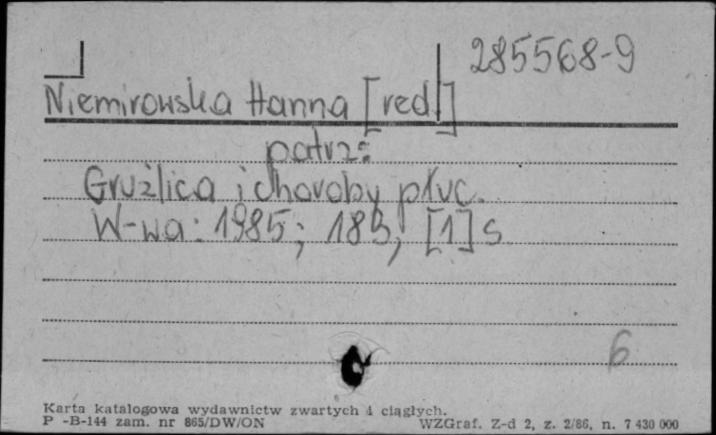 285568-9
Niemirowska Hanna [red.]
patrz:
Gruźlica i choroby płuc.
W-wa: 1985; 183, [1] s
6
Karta katalogowa wydawnictw zwartych i ciągłych.
P -B-144 zam. nr 865/DW/ON WZGraf. Z-d 2, z. 2/86, n. 7 430 000